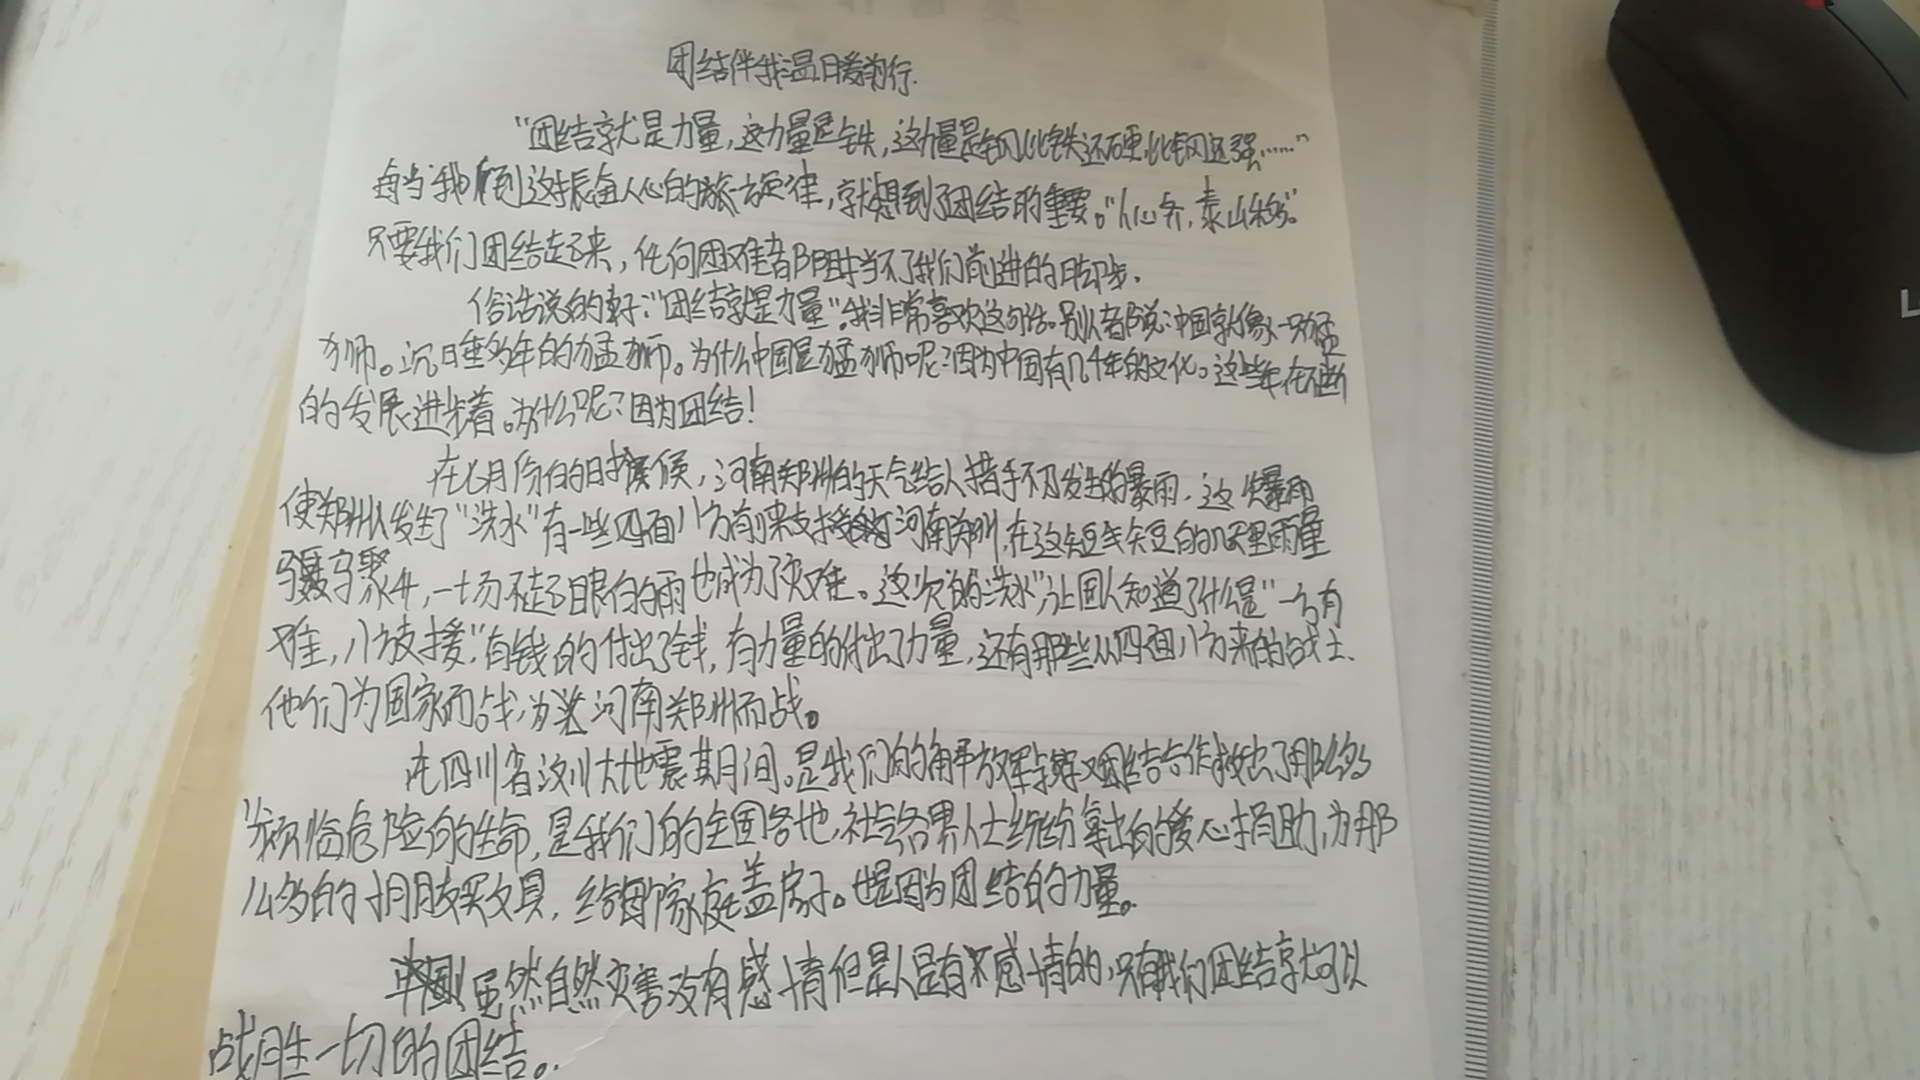 团结伴我温暖前行.
“团结就是力量,这力量是铁,这力量是钢比铁还硬,比钢还强……”
每当我听到这振奋人心的旋律,就想到了团结的重要。“人心齐,泰山移”。
只要我们团结起来,任何困难都阻挡不了我们前进的脚步.
俗话说的好:“团结就是力量”.我非常喜欢这句话。别人都说:中国就像一只猛
狮。沉睡多年的猛狮。为什么中国是猛狮呢?因为中国有几千年的文化。这些年在不断
的发展进步着。为什么呢?因为团结!
在七月份的时候,河南郑州的天气给人措手不及发生的暴雨.这爆雨
使郑州发生了“洪水”有一些四面八方前来支援河南郑州,在这短短的几天里雨量
骤升,一场不起眼的雨也成为了灾难。这次的“洪水”,让国人知道了什么是“一方有
难,八方支援”,有钱的付出了钱,有力量的付出了力量,还有那些从四面八方来的战士、
他们为国家而战,为河南郑州而战。
在四川省汶川大地震期间.是我们的解放军团结合作救出了那么多
濒临危险的生命,是我们的全国各地,社会各界人士纷纷拿出的爱心捐助,为那
么多的朋友买文具,给每个家庭盖房子。也是因为团结的力量。
虽然自然灾害没有感情但是人是有感情的,只有我们团结就可以
战胜一切的团结。